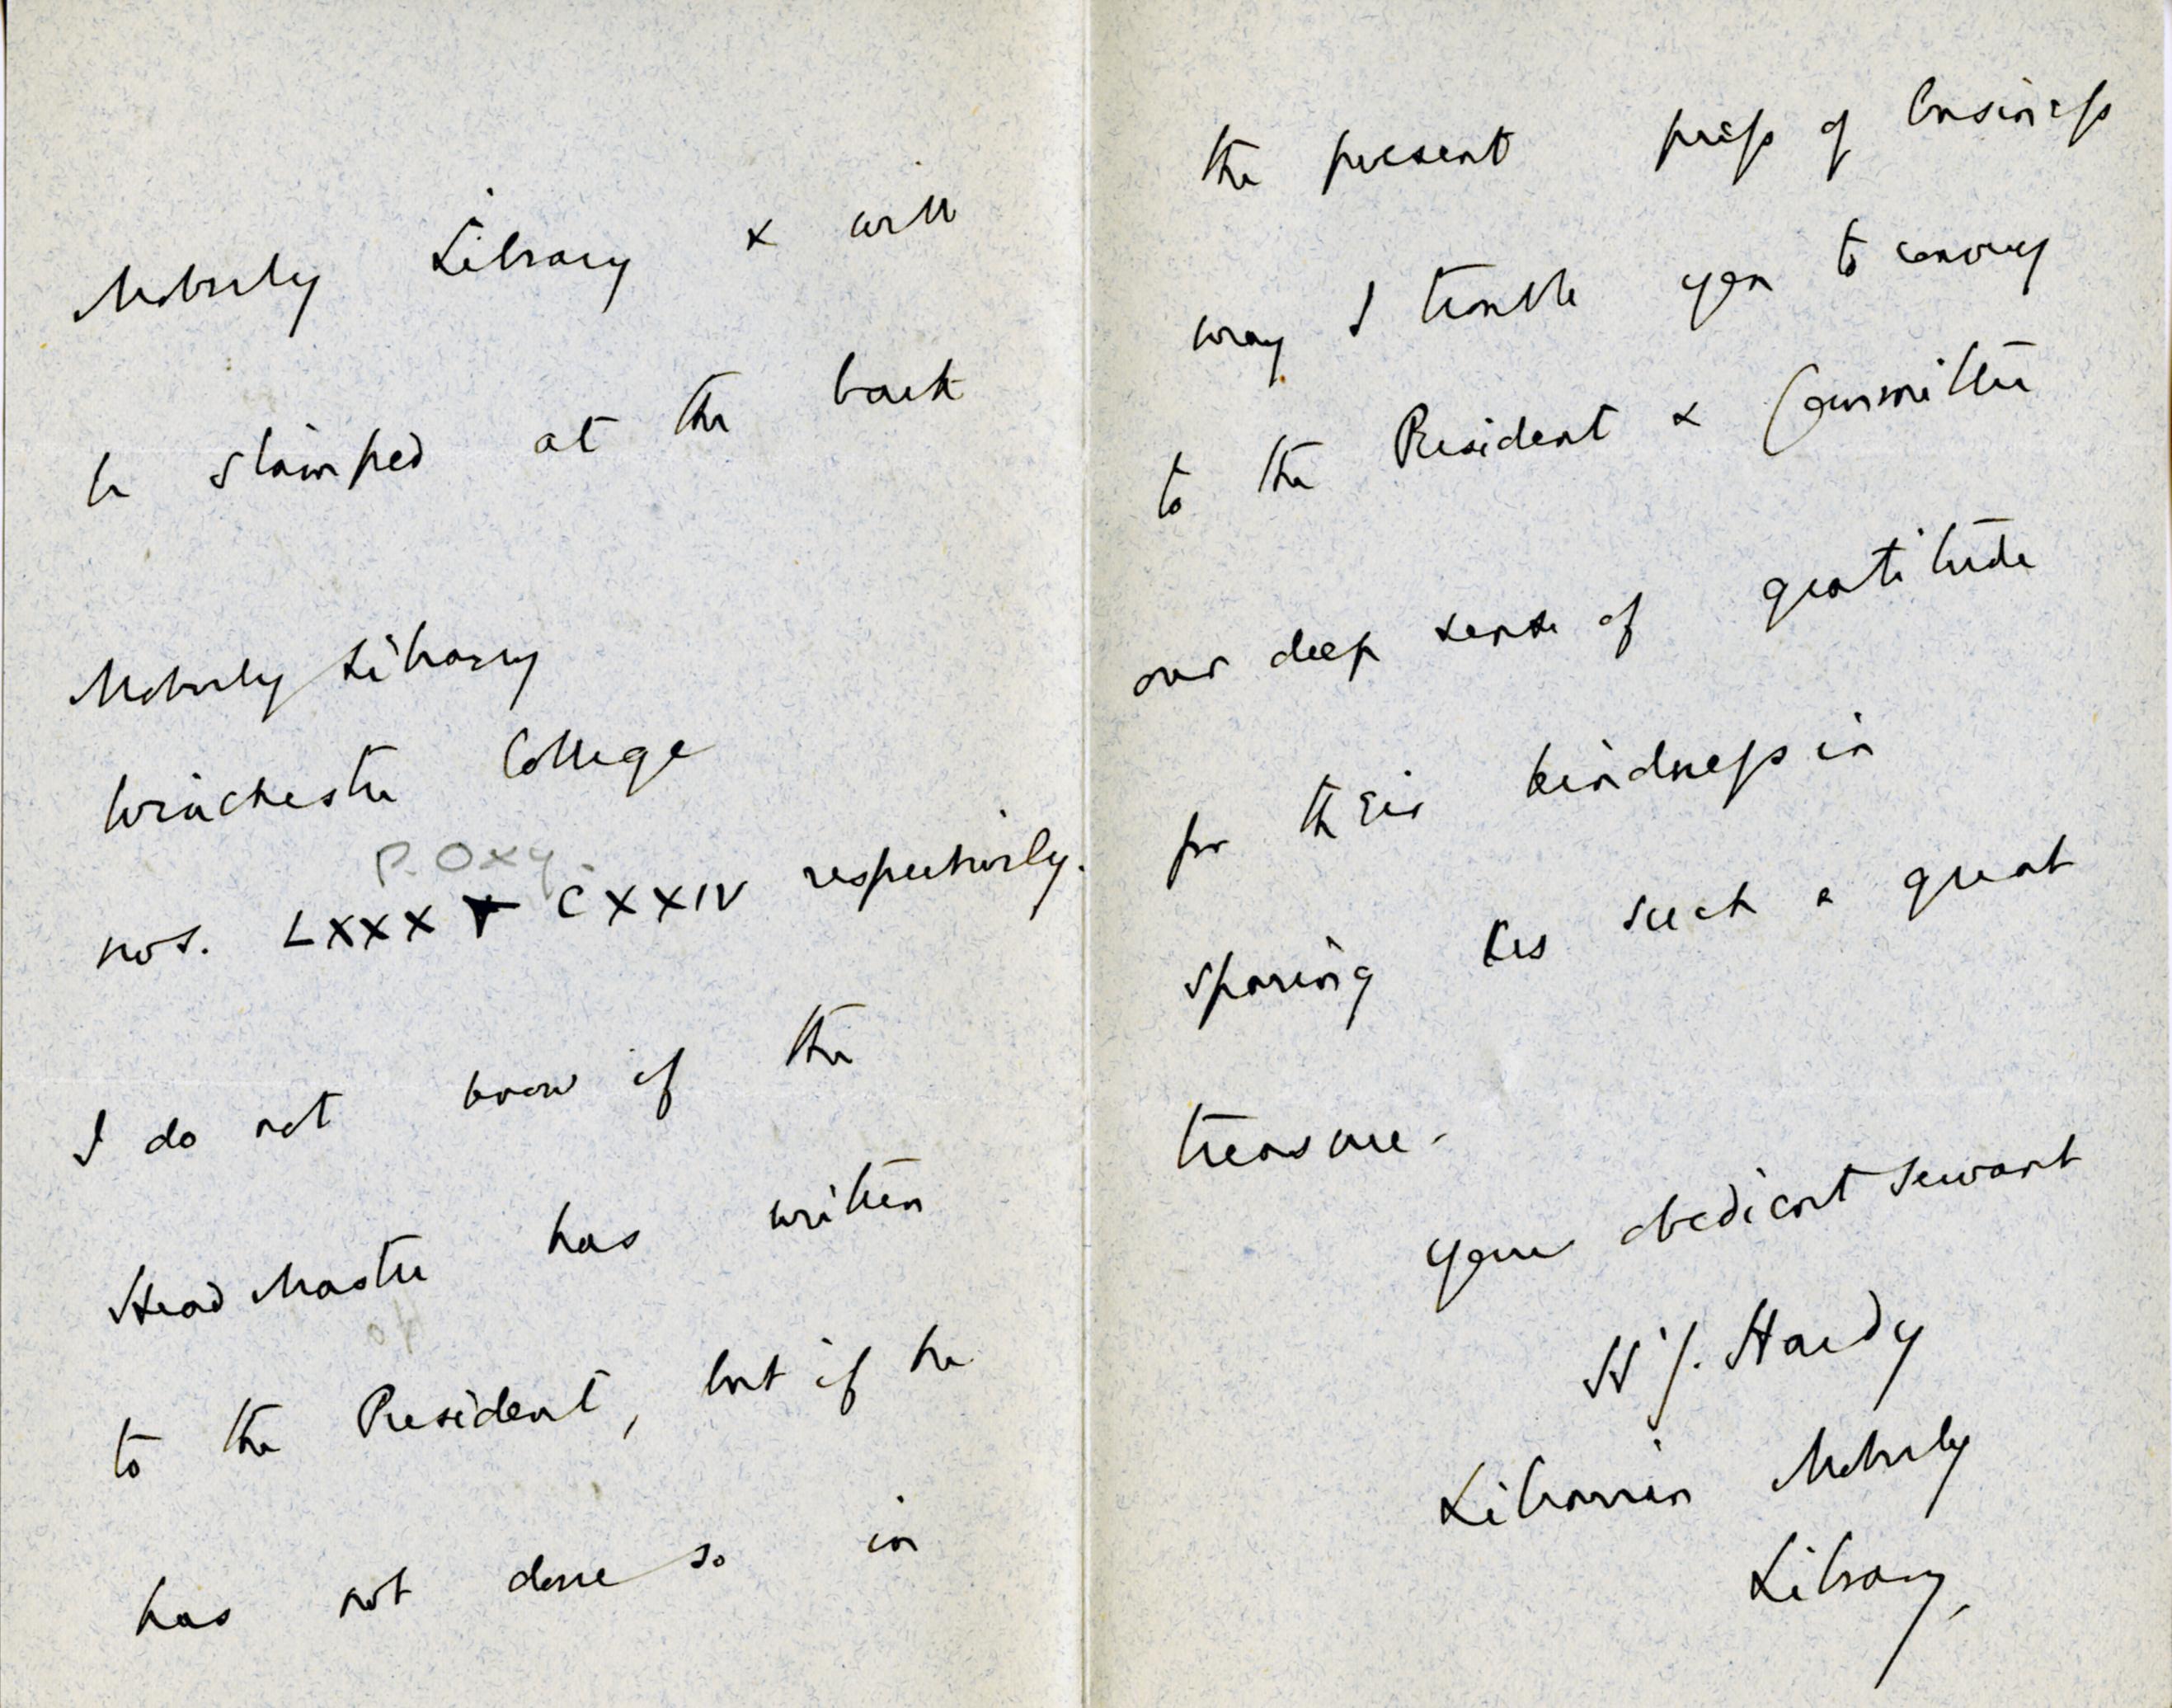 Moberly Library & will
be stamped at the back
Moberly Library
Winchester College
P. Oxy.
nos. LXXX CXXIV respectively.
I do not know if the
Head Master has written
to the President, but if he
has not done so in
the present press of business
may I trouble you to convey
to the President & Committee
our deep sense of gratitude
for their kindness in
sparing us such a great
treasure.
Your obedient servant
H. J. Hardy
Librarian Moberly
Library.